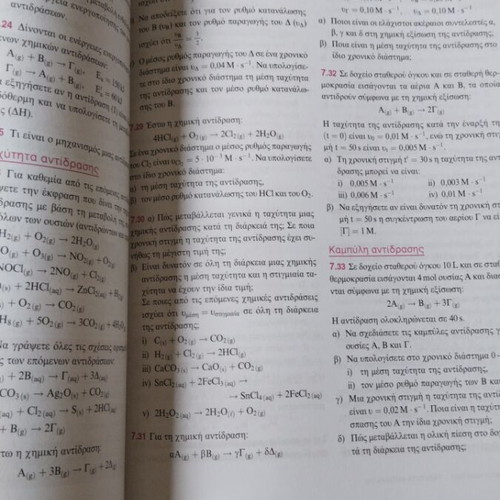 αντιδράσεων.
.24 Δίνονται οι ενέργειες
χημικών αντιδράσεων:
A(g) + B(g) → Γ(g)
Γ(g) → A(g) + B(g)
(ΔH).
Τι είναι ο μηχανισμός μιας
ταχύτητα αντίδρασης
Για καθεμία από τις
την έκφραση που δίνει
δρασης με βάση τη μεταβολή
όλων των ουσιών
H2(g) + O2(g) → 2H2O(g)
O(g) + O3(g) → NO2(g) + O2(g)
NOCl(g) → 2NO(g) + Cl2(g)
(s) + 2HCl(aq) → ZnCl2(aq) + H2(g)
(s) + O2(g) → CO2(g)
H8(g) + 5O2(g) → 3CO2(g) + 4H2O
Να γράψετε όλες τις σχέσεις
των επόμενων αντιδράσεων:
+ 2B(aq) → Γ(aq) + 3Δ(aq)
CO3(s) → Ag2O(s) + CO2(g)
(aq) + Cl2(g) → S(s) + 2HCl(aq)
+ B(g) → 2Γ(g)
έστω η χημική αντίδραση:
A(g) + 3B(g) → Γ(g) + 2Δ(g)
Να αποδείξετε ότι για τον ρυθμό κατανάλωσης
του Β (υΒ) και τον ρυθμό παραγωγής του Δ (υΔ)
ισχύει ότι
Ο μέσος ρυθμός παραγωγής του Δ σε ένα χρονικό
διάστημα είναι υΔ = 0,04 M · s⁻¹. Να υπολογίσε-
τε στο ίδιο χρονικό διάστημα τη μέση ταχύτητα
της αντίδρασης και τον μέσο ρυθμό κατανάλω-
σης του Β.
7.29 Έστω η χημική αντίδραση:
4HCl(g) + O2(g) → 2Cl2(g) + 2H2O(g)
Σε ένα χρονικό διάστημα ο μέσος ρυθμός παραγωγής
του Cl2 είναι υCl2 = 5 · 10⁻³ M · s⁻¹. Να υπολογίσετε
το ίδιο χρονικό διάστημα:
α) τη μέση ταχύτητα της αντίδρασης,
β) τον μέσο ρυθμό κατανάλωσης του HCl και του O2.
7.30 α) Πώς μεταβάλλεται γενικά η ταχύτητα μιας
χημικής αντίδρασης κατά τη διάρκειά της; Σε ποια
χρονική στιγμή η ταχύτητα της αντίδρασης έχει συ-
νήθως τη μέγιστη τιμή της;
β) Είναι δυνατόν σε όλη τη διάρκεια μιας χημικής
αντίδρασης η μέση ταχύτητα και η στιγμιαία τα-
χύτητα να έχουν την ίδια τιμή;
Σε ποιες από τις επόμενες χημικές αντιδράσεις
ισχύει ότι υμέση = υστιγμιαία σε όλη τη διάρκεια
της αντίδρασης;
i) C(s) + O2(g) → CO2(g)
ii) H2(g) + Cl2(g) → 2HCl(g)
iii) CaCO3(s) → CaO(s) + CO2(g)
iv) SnCl2(aq) + 2FeCl3(aq) →
→ SnCl4(aq) + 2FeCl2(aq)
v) 2H2O2(aq) → 2H2O(ℓ) + O2(g)
7.31 Για τη χημική αντίδραση:
αA(g) + βB(g) → γΓ(g) + δΔ(g)
υΓ = 0,10 M · s⁻¹,
α) Ποιοι είναι οι ελάχιστοι ακέραιοι συντελεστές α,
β, γ και δ στη χημική εξίσωση της αντίδρασης;
β) Ποια είναι η μέση ταχύτητα της αντίδρασης στο
ίδιο χρονικό διάστημα;
7.32 Σε δοχείο σταθερού όγκου και σε σταθερή θερ-
μοκρασία εισάγονται τα αέρια Α και Β, τα οποία
αντιδρούν σύμφωνα με τη χημική εξίσωση:
A(g) + B(g) → 2Γ(g)
Η ταχύτητα της αντίδρασης κατά την έναρξή της
(t = 0) είναι υ0 = 0,01 M · s⁻¹, ενώ τη χρονική στιγ-
μή t = 50 s είναι υ1 = 0,005 M · s⁻¹.
α) Τη χρονική στιγμή t′ = 30 s η ταχύτητα της αντί-
δρασης μπορεί να είναι:
i) 0,005 M · s⁻¹ ii) 0,003 M · s⁻¹
iii) 0,006 M · s⁻¹ iv) 0,01 M · s⁻¹
β) Να εξηγήσετε αν είναι δυνατόν τη χρονική στιγ-
μή t = 50 s η συγκέντρωση του αερίου Γ να είναι
[Γ] = 1 M.
Καμπύλη αντίδρασης
7.33 Σε δοχείο σταθερού όγκου 10 L και σε σταθερή
θερμοκρασία εισάγονται 4 mol ουσίας Α και διασ
ται σύμφωνα με τη χημική εξίσωση:
2A(g) → B(g) + 3Γ(g)
Η αντίδραση ολοκληρώνεται σε 40 s.
α) Να σχεδιάσετε τις καμπύλες αντίδρασης γ
ουσίες Α, Β και Γ.
β) Να υπολογίσετε στο χρονικό διάστημα 0 –
i) τη μέση ταχύτητα της αντίδρασης,
ii) τον μέσο ρυθμό παραγωγής των Β κα
γ) Μια χρονική στιγμή η ταχύτητα της αντίδ
είναι υ = 0,02 M · s⁻¹. Ποια είναι η ταχύτ
σπασης του Α την ίδια χρονική στιγμή;
δ) Πώς μεταβάλλεται η ολική πίεση στο δο
τά τη διάρκεια της αντίδρασης;